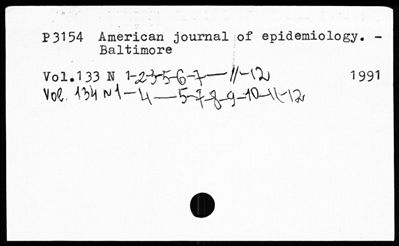 P3154 American journal of epidemiology. -
Baltimore
Vol.133 N 1-2-3-5-6-7—11-12 1991
Vol. 134 N1-4—5-7-8-9-10-11-12